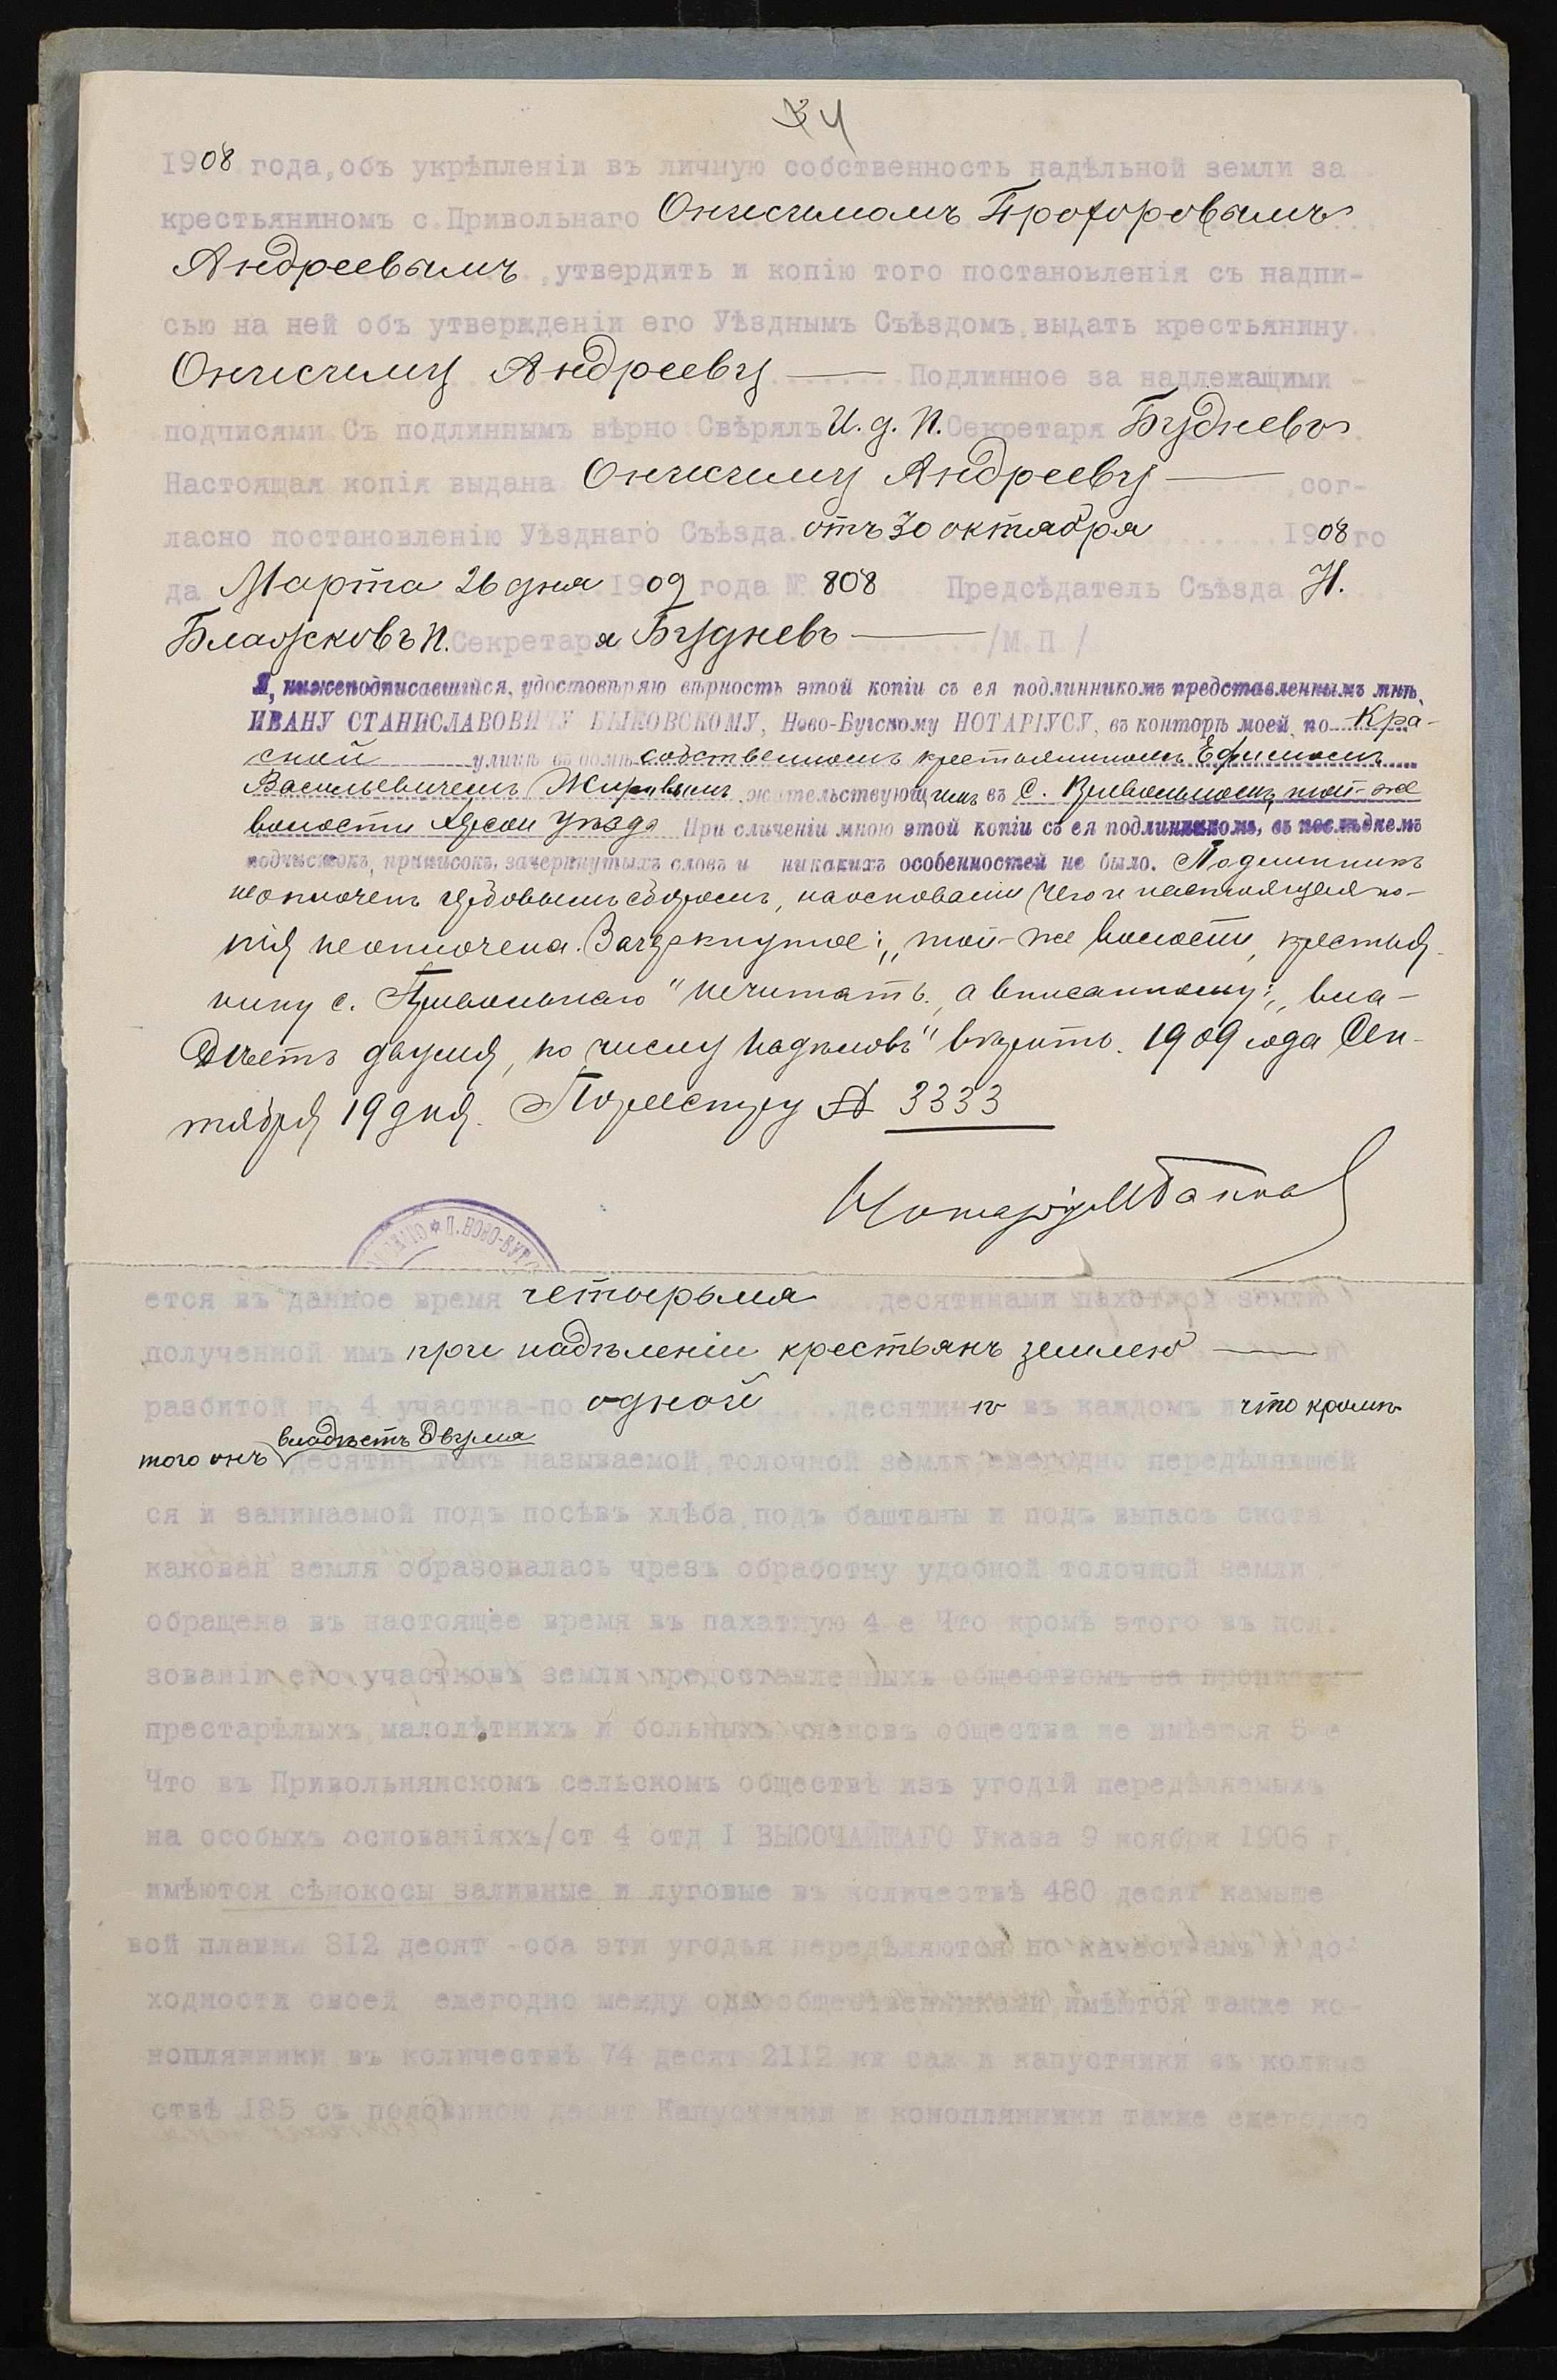 34
1908 года, объ укрѣпленіи въ личную собственность надѣльной земли за
крестьяниномъ с.Привольнаго Онисимомъ Прохоровымъ
Андреевымъ, утвердить и копію того постановленія съ надпи-
сью на ней объ утвержденіи его Уѣзднымъ Съѣздомъ, выдать крестьянину
Онисиму Андрееву — Подлинное за надлежащими -
подписями Съ подлиннымъ вѣрно: Свѣрялъ И. д. П. Секретаря Будневъ.
Настоящая копія выдана Онисиму Андрееву —, сог-
ласно постановленію Уѣзднаго Съѣзда отъ 30 октября 1908 го
да Марта 26 дня 1909 года № 808 Предсѣдатель Съѣзда Н.
П. Секретаря Будневъ — /М.П./
Я, нижеподписавшійся, удостовѣряю вѣрность этой копіи съ ея подлинникомъ представленнымъ мнѣ,
ИВАНУ СТАНИСЛАВОВИЧУ БЫКОВСКОМУ, Ново-Бугскому НОТАРІУСУ, въ конторѣ моей, по Кра-
сной улицѣ въ домѣ собственномъ крестьяниномъ Ефимомъ
Васильевичемъ жительствующимъ въ с. Привольномъ, той-же
волости Херсон уѣзда При сличеніи мною этой копіи съ ея подлинникомъ, въ послѣднемъ
подчистокъ, приписокъ, зачеркнутыхъ словъ и никакихъ особенностей не было. Подлинникъ
неоплоченъ гербовымъ сборомъ, на основаніи чего и настоящая ко-
пія неоплочена. Зачеркнутое: „той-же волости, крестья-
нину с. Привольнаго" нечитать, а вписанному: „вла-
дѣетъ двумя, по числу надѣловъ" вѣрить. 1909 года Сен-
тября 19 дня. По реестру № 3333
Нотаріусъ
П. НОВО-БУГ
ется въ данное время четырьмя десятинами пахотной земли
полученной имъ при надѣленіи крестьянъ землею —
разбитой на 4 участка-по одной десятинѣ въ каждомъ и что кромѣ
владѣетъ двумя
того онъ десятин такъ называемой толочной земли ежегодно передѣлявшей
ся и занимаемой подъ посѣвъ хлѣба, подъ баштаны и подъ выпасъ скота
каковая земля образовалась чрезъ обработку удобной толочной земли
обращена въ настоящее время въ пахатную 4-е Что кромѣ этого въ пол.
зованіи его участковъ земли предоставленныхъ обществомъ за
престарѣлыхъ, малолѣтнихъ и больныхъ членовъ общества не имѣется 5 е
Что въ Привольнянскомъ сельскомъ обществѣ изъ угодій передѣляемыхъ
на особыхъ основаніяхъ/ст 4 отд I ВЫСОЧАЙШАГО Указа 9 ноября 1906 г
имѣются сѣнокосы заливные и луговые въ количествѣ 480 десят камыше
вой плавни 312 десят -оба эти угодья передѣляются по качествамъ и до-
ходности своей ежегодно между однообщественниками, имѣются также ко-
ноплянники въ количествѣ 74 десят 2112 кв саж и капустники въ количе
ствѣ 185 съ половиною десят Капустники и коноплянники также ежегодно